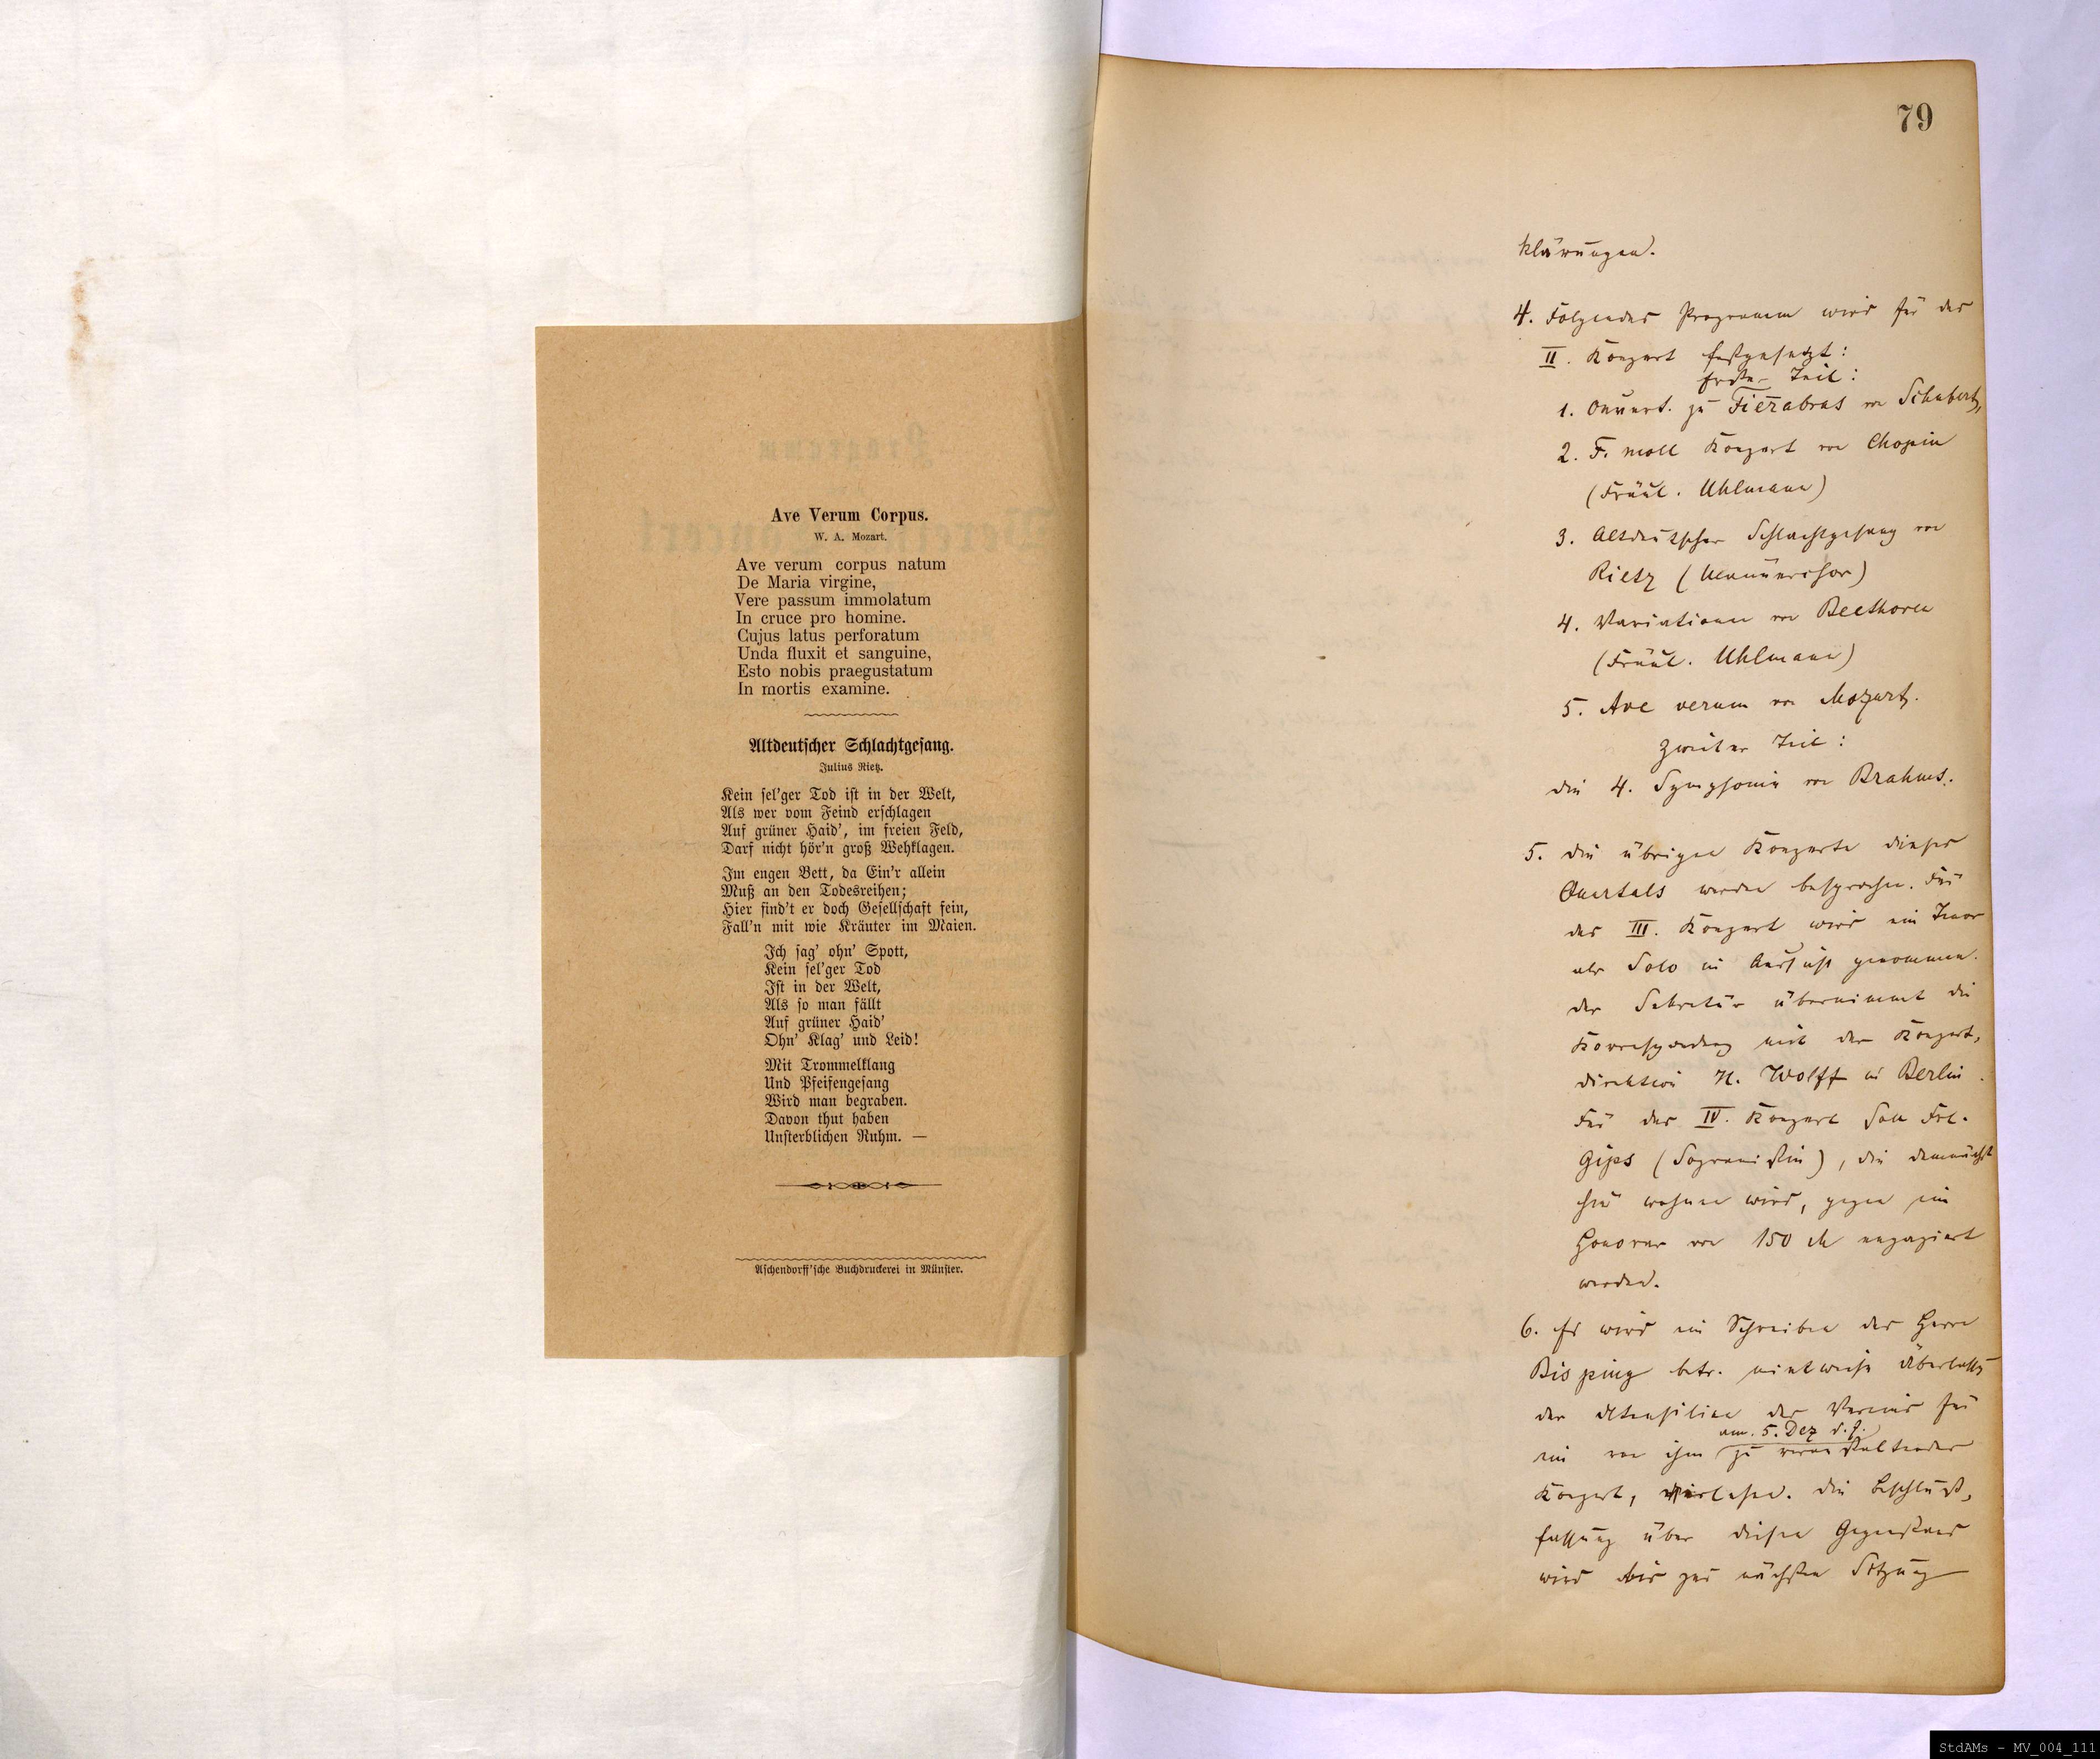 Ave Verum Corpus.
W. A. Mozart.
Ave verum corpus natum
De Maria virgine,
Vere passum immolatum
In cruce pro homine.
Cujus latus perforatum
Unda fluxit et sanguine,
Esto nobis praegustatum
In mortis examine.
Altdeutscher Schlachtgesang.
Julius Rietz.
Kein sel'ger Tod ist in der Welt,
Als wer vom Feind erschlagen
Auf grüner Haid', im freien Feld,
Darf nicht hör'n groß Wehklagen.
Im engen Bett, da Ein'r allein
Muß an den Todesreihen;
Hier find't er doch Gesellschaft fein,
Fall'n mit wie Kräuter im Maien.
Ich sag' ohn' Spott,
Kein sel'ger Tod
Ist in der Welt,
Als so man fällt
Auf grüner Haid'
Ohn' Klag' und Leid!
Mit Trommelklang
Und Pfeifengesang
Wird man begraben.
Davon thut haben
Unsterblichen Ruhm. —
Aschendorff'sche Buchdruckerei in Münster.
79
klärungen.
4. Folgendes Programm wird für das
II. Konzert festgesetzt:
Erster Teil:
1. Ouvert. zu Fierabras von Schubert,
2. F. moll Konzert von Chopin
(Fräul. Uhlmann)
3. Altdeutscher Schlachtgesang von
Rietz (Männerchor)
4. Variationen von Beethoven
(Fräul. Uhlmann)
5. Ave verum von Mozart.
Zweiter Teil:
die 4. Symphonie von Brahms.
5. Die übrigen Konzerte dieses
Quartals werden besprochen. Für
das III. Konzert wird ein Tenor
als Solo in Aussicht genommen.
Der Sekretär übernimmt die
Korrespondenz mit der Konzert-
direktion H. Wolff in Berlin.
Für das IV. Konzert soll Frl.
Gips (Sopranistin), die demnächst
hier wohnen wird, gegen ein
Honorar von 150 M engagiert
werden.
6. Es wird ein Schreiben des Herrn
Bisping betr. mietweise Überlassg
der Utensilien des Vereins für
am 5. Dez d. J.
ein von ihm zu veranstaltendes
Konzert, verlesen. Die Beschluß-
fassung über diesen Gegenstand
wird bis zur nächsten Sitzung
StdAMs - MV_004_111